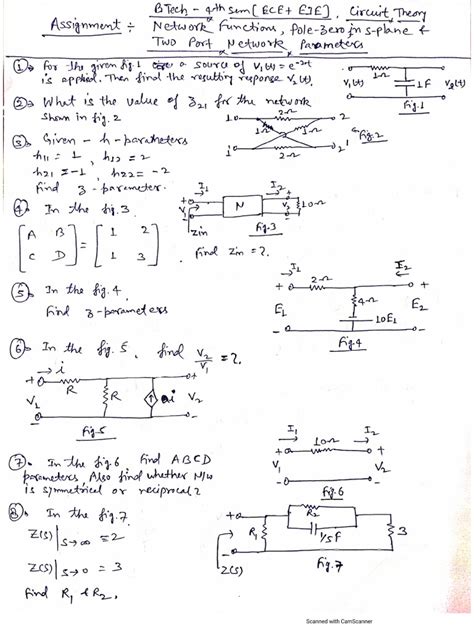 BTech - 4th sem [ECE + EIE], Circuit Theory
Assignment ÷ Network Functions, Pole-Zero in s-plane &
Two Port Network Parameters
① For the given fig. 1 a source of V₁(t) = e^-2t
is applied. Then find the resulting response V₂(t).
V₁(t) 1Ω 1F V₂(t)
Fig. 1
② What is the value of Z₂₁ for the network
shown in fig. 2
1 2Ω 2
1Ω 1Ω
1' 2Ω 2'
Fig. 2
③ Given - h - parameters
h₁₁ = 1, h₁₂ = 2
h₂₁ = -1, h₂₂ = -2
Find z-parameter.
④ In the fig. 3
[A B C D] = [1 2 1 3]
I₁ I₂
V₁ N V₂ 10Ω
Zin Fig. 3
Find Zin = ?
⑤ In the fig. 4
Find z-parameters
I₁ I₂
+ 2Ω +
E₁ 4Ω E₂
10E₁
- -
Fig. 4
⑥ In the fig. 5, find V₂/V₁ = ?
+ i +
R
V₁ R αi V₂
- -
Fig. 5
⑦ In the fig 6 find ABCD
parameters. Also find whether N/w
is symmetrical or reciprocal?
I₁ I₂
+ 10Ω +
V₁ V₂
- -
Fig. 6
⑧ In the fig. 7
Z(s)|s→∞ = 2
Z(s)|s→0 = 3
Find R₁ & R₂.
+ R₂
R₁ 1/5F 3
Z(s)
Fig. 7
Scanned with CamScanner